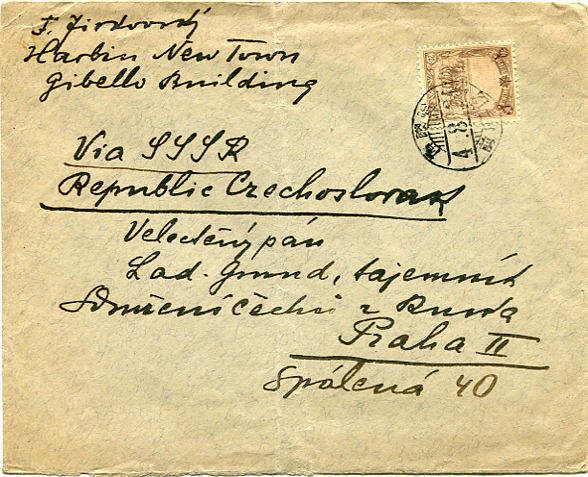 F. Jirkovský
Harbin New Town
Gibello Building
Via SSSR
Republic Czechoslovak
Veloctěný pán
Lad. Grund, tajemník
Sdružení Čechů z Ruska
Praha II
Spálená 40
4. 8.